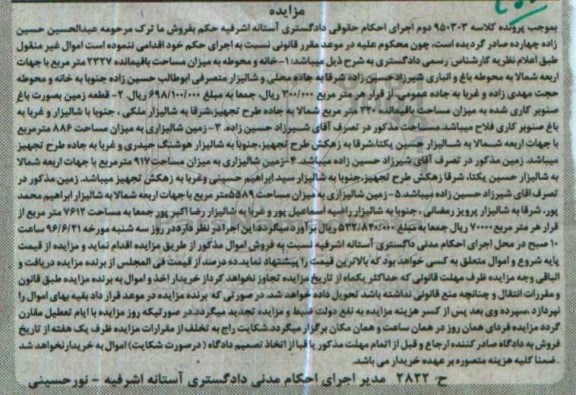 مزایده
بموجب پرونده کلاسه ۹۵۰۳۰۳ دوم اجرای احکام حقوقی دادگستری آستانه اشرفیه حکم بفروش ما ترک مرحومه عبدالحسین حسین
زاده چهارده صادر گردیده است، چون محکوم علیه در موعد مقرر قانونی نسبت به اجرای حکم خود اقدامی ننموده است اموال غیر منقول
طبق اعلام نظریه کارشناس رسمی دادگستری به شرح ذیل میباشد: ۱- خانه و محوطه به میزان مساحت باقیمانده ۲۳۲۷ متر مربع با جهات
اربعه شمالا به محوطه باغ و انباری شیرزاد حسین زاده شرقا به جاده محلی و شالیزار متصرفی ابوطالب حسین زاده جنوبا به خانه و محوطه
حجت مهدی زاده و غربا به جاده عمومی، از قرار هر متر مربع ۳۰۰/۰۰۰ ریال، جمعا به مبلغ ۶۹۸/۱۰۰/۰۰۰ ریال. ۲- قطعه زمین بصورت باغ
صنوبر کاری شده به میزان مساحت باقیمانده ۳۲۰ متر مربع شمالا به جاده طرح تجهیز، شرقا به شالیزار ملکی ، جنوبا با شالیزار و غربا به
باغ صنوبر کاری فلاح میباشد. مساحت مذکور در تصرف آقای شیرزاد حسین زاده. ۳- زمین شالیزاری به میزان مساحت ۸۸۶ متر مربع
با جهات اربعه شمالا به شالیزار حسین یکتا، شرقا به زهکش طرح تجهیز، جنوبا به شالیزار هوشنگ حیدری و غربا به جاده طرح تجهیز
میباشد. زمین مذکور در تصرف آقای شیرزاد حسین زاده میباشد. ۴- زمین شالیزاری به میزان مساحت ۹۱۷ متر مربع با جهات اربعه شمالا
به شالیزار حسین یکتا، شرقا زهکش طرح تجهیز، جنوبا به شالیزار سید ابراهیم حسینی و غربا به زهکش تجهیز میباشد. زمین مذکور در
تصرف آقای شیرزاد حسین زاده میباشد. ۵- زمین شالیزاری به میزان مساحت ۵۵۸۹ متر مربع با جهات اربعه شمالا به شالیزار ابراهیم محمد
پور، شرقا به شالیزار پرویز رمضانی ، جنوبا به شالیزار راضیه اسماعیل پور و غربا به شالیزار رضا اکبر پور جمعا به مساحت ۷۶۱۲ متر مربع از
قرار هر متر مربع ۷۰۰۰۰ ریال جمعا به مبلغ ۵۳۲/۸۴۰/۰۰۰ ریال برآورد میگردد. این اجرا در نظر دارد در روز سه شنبه مورخه ۹۶/۶/۲۱ ساعت
۱۰ صبح در محل اجرای احکام مدنی دادگستری آستانه اشرفیه نسبت به فروش اموال مذکور از طریق مزایده اقدام نماید و مزایده از قیمت
پایه شروع و اموال متعلق به کسی خواهد بود که بالاترین قیمت را پیشنهاد نماید. ده درصد از قیمت فی المجلس از برنده مزایده دریافت و
الباقی وجه مزایده ظرف مهلت قانونی که حداکثر یکماه از تاریخ مزایده تجاوز نخواهد کرد از خریدار اخذ و اموال به برنده مزایده طبق قانون
و مقررات انتقال و چنانچه منع قانونی نداشته باشد تحویل داده خواهد شد. در صورتی که برنده مزایده در موعد قرار داد بقیه بهای اموال را
نپردازد، سپرده وی بعد پس از کسر هزینه مزایده به نفع دولت ضبط و مزایده تجدید میگردد. در صورتیکه روز مزایده با ایام تعطیل مقارن
گردد مزایده فردای همان روز در همان ساعت و همان مکان برگزار میگردد. شکایت راجع به تخلف از مقررات مزایده ظرف یک هفته از تاریخ
فروش به دادگاه صادر کننده ارجاع و قبل از اتمام مهلت مذکور یا قبل از اتخاذ تصمیم دادگاه ( در صورت شکایت) اموال به خریدار نخواهد شد
. ضمنا کلیه هزینه متصوره بر عهده خریدار می باشد.
ح. ۲۸۲۲ مدیر اجرای احکام مدنی دادگستری آستانه اشرفیه - نورحسینی